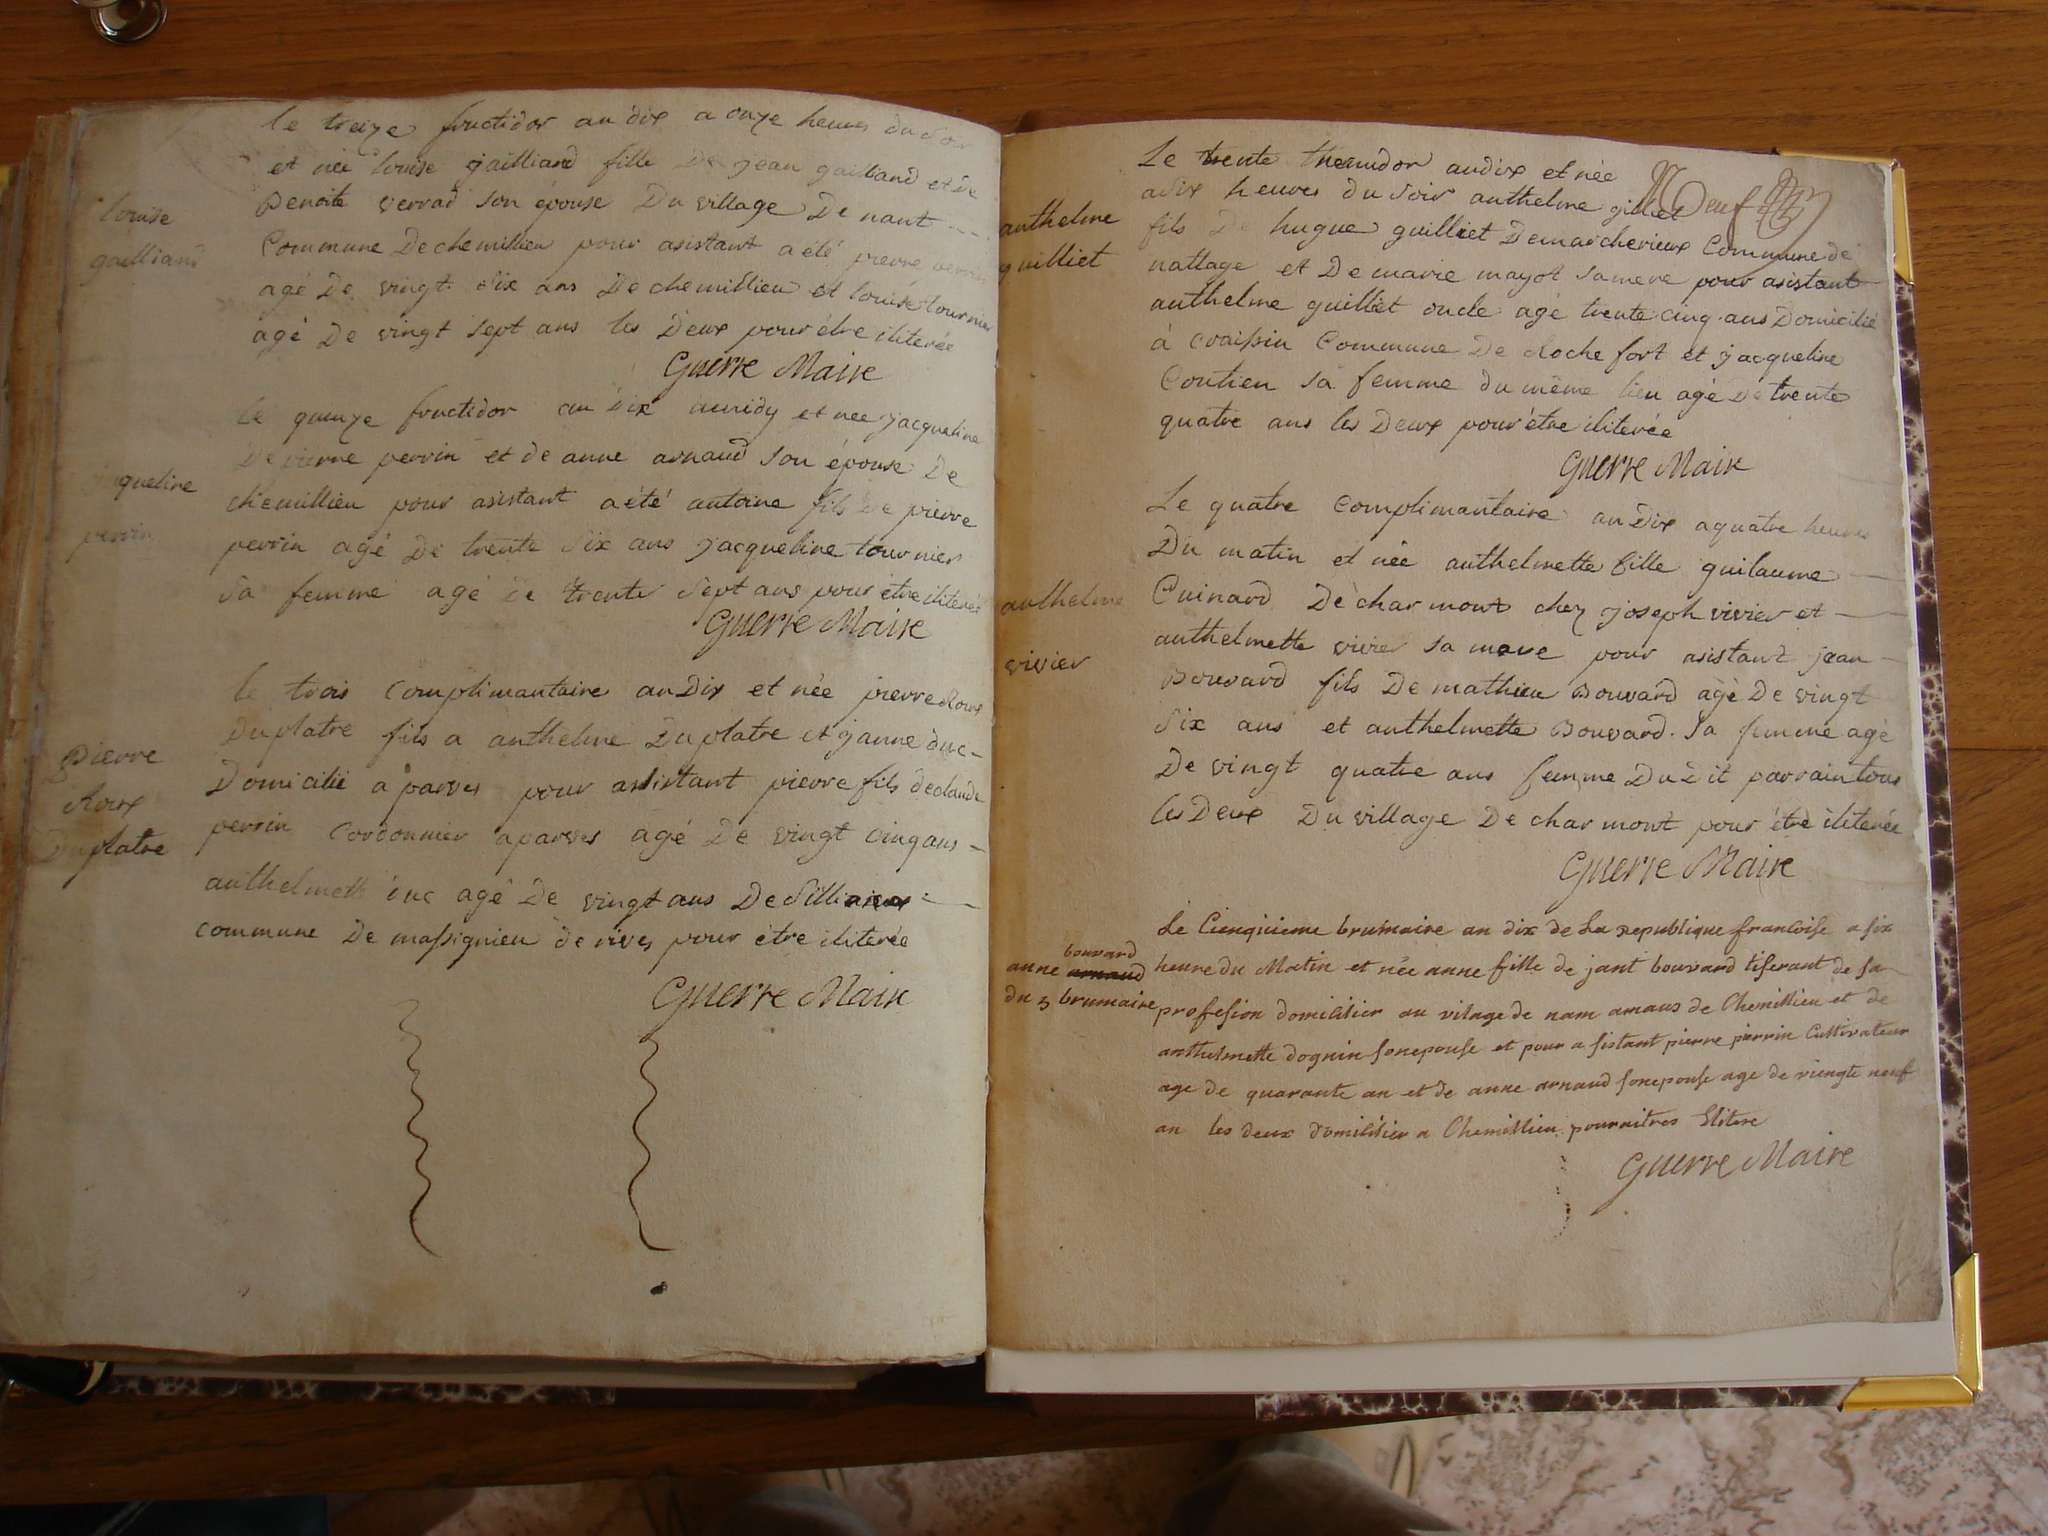 le treize fructidor an dix a onze heures du soir
et née louise gailliard fille De jean gailliard et de
Benoite verrad son épouse Du village De nant
Commune De chemillieu pour asistant a été pierre perrin
agé De vingt six ans De chemillieu et louise tournier
agé De vingt sept ans les Deux pour être iliterée
Guerre Maire
louise
gailliard
le quinze fructidor an dix a midy et née jacqueline
De pierre perrin et de anne arnaud son épouse De
chemillieu pour asistant a été antoine fils De pierre
perrin agé De trente six ans jacqueline tournier
sa femme agé De trente sept ans pour être iliterée
Guerre Maire
jaqueline
perrin
le trois complimantaire an Dix et née pierre Roux
Duplatre fils a anthelme Duplatre et janne duc
Domicilié a parves pour assistant pierre fils de claude
perrin cordonnier a parves agé De vingt cinq ans
anthelmette duc agé De vingt ans De
commune De massignieu de rives pour etre iliterée
Guerre Maire
Pierre
Roux
Duplatre
Neuf
Le trente thermidor an dix et née
a dix heures du soir anthelme gilliet
fils De hugue guilliet De marcherieux Commune de
nattage et De marie mayot sa mere pour asistant
anthelme guilliet oncle agé trente cinq ans Domicilié
à craissin Commune De Roche fort et jacqueline
Coutien sa femme du même lieu agé De trente
quatre ans les Deux pour être iliterée
Guerre Maire
anthelme
guilliet
Le quatre complimantaire an Dix a quatre heures
Du matin et née anthelmette fille guilaume
Cuinard De charmont chez joseph vivier et
anthelmette vivier sa mere pour asistant jean
Bouvard fils De mathieu Bouvard agé De vingt
six ans et anthelmette Bouvard sa femme agé
De vingt quatre ans femme Du Dit parrain tous
les Deux Du village De charmont pour être iliterée
Guerre Maire
anthelme
vivier
Le Cinquieme brumaire an dix de La republique francoise a six
heure du Matin et née anne fille de jant bouvard tiserant de sa
profesion domicilier au vilage de nam amaus de Chemillieu et de
anthelmette dognin son epouse et pour a sistant pierre perrin Cultivateur
age de quarante an et de anne arnaud son epouse age de viengte neuf
an les deux domicilier a Chemillieu pour aitres Elitere
Guerre Maire
bouvard
anne arnaud
du 5 brumaire